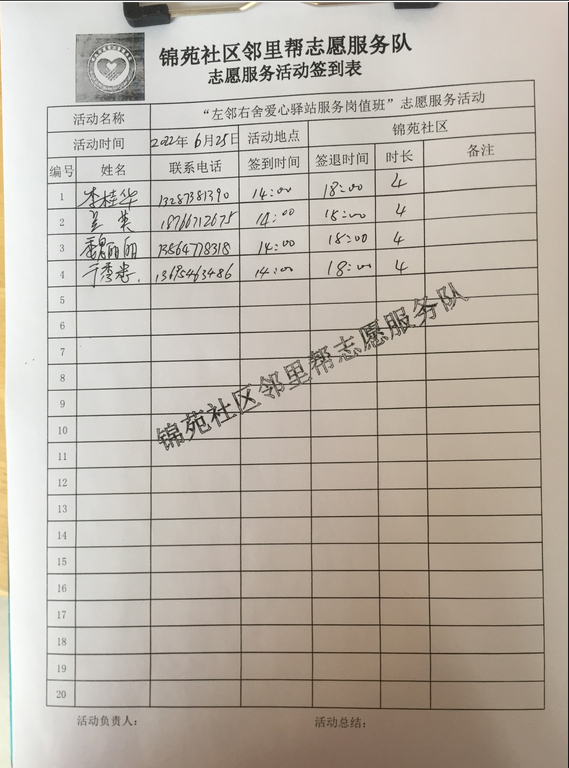 锦苑社区邻里帮志愿服务队
志愿服务活动签到表
活动名称 “左邻右舍爱心驿站服务岗值班”志愿服务活动
活动时间 2022年 6月25日 活动地点 锦苑社区
编号 姓名 联系电话 签到时间 签退时间 时长 备注
1 李桂华 13287381390 14:00 18:00 4
2 英 18766712675 14:00 18:00 4
3 魏丽丽 13864778318 14:00 18:00 4
4 于秀 13695463486 14:00 18:00 4
5
6
7
8
9
10
11
12
13
14
15
16
17
18
19
20
锦苑社区邻里帮志愿服务队
活动负责人: 活动总结: